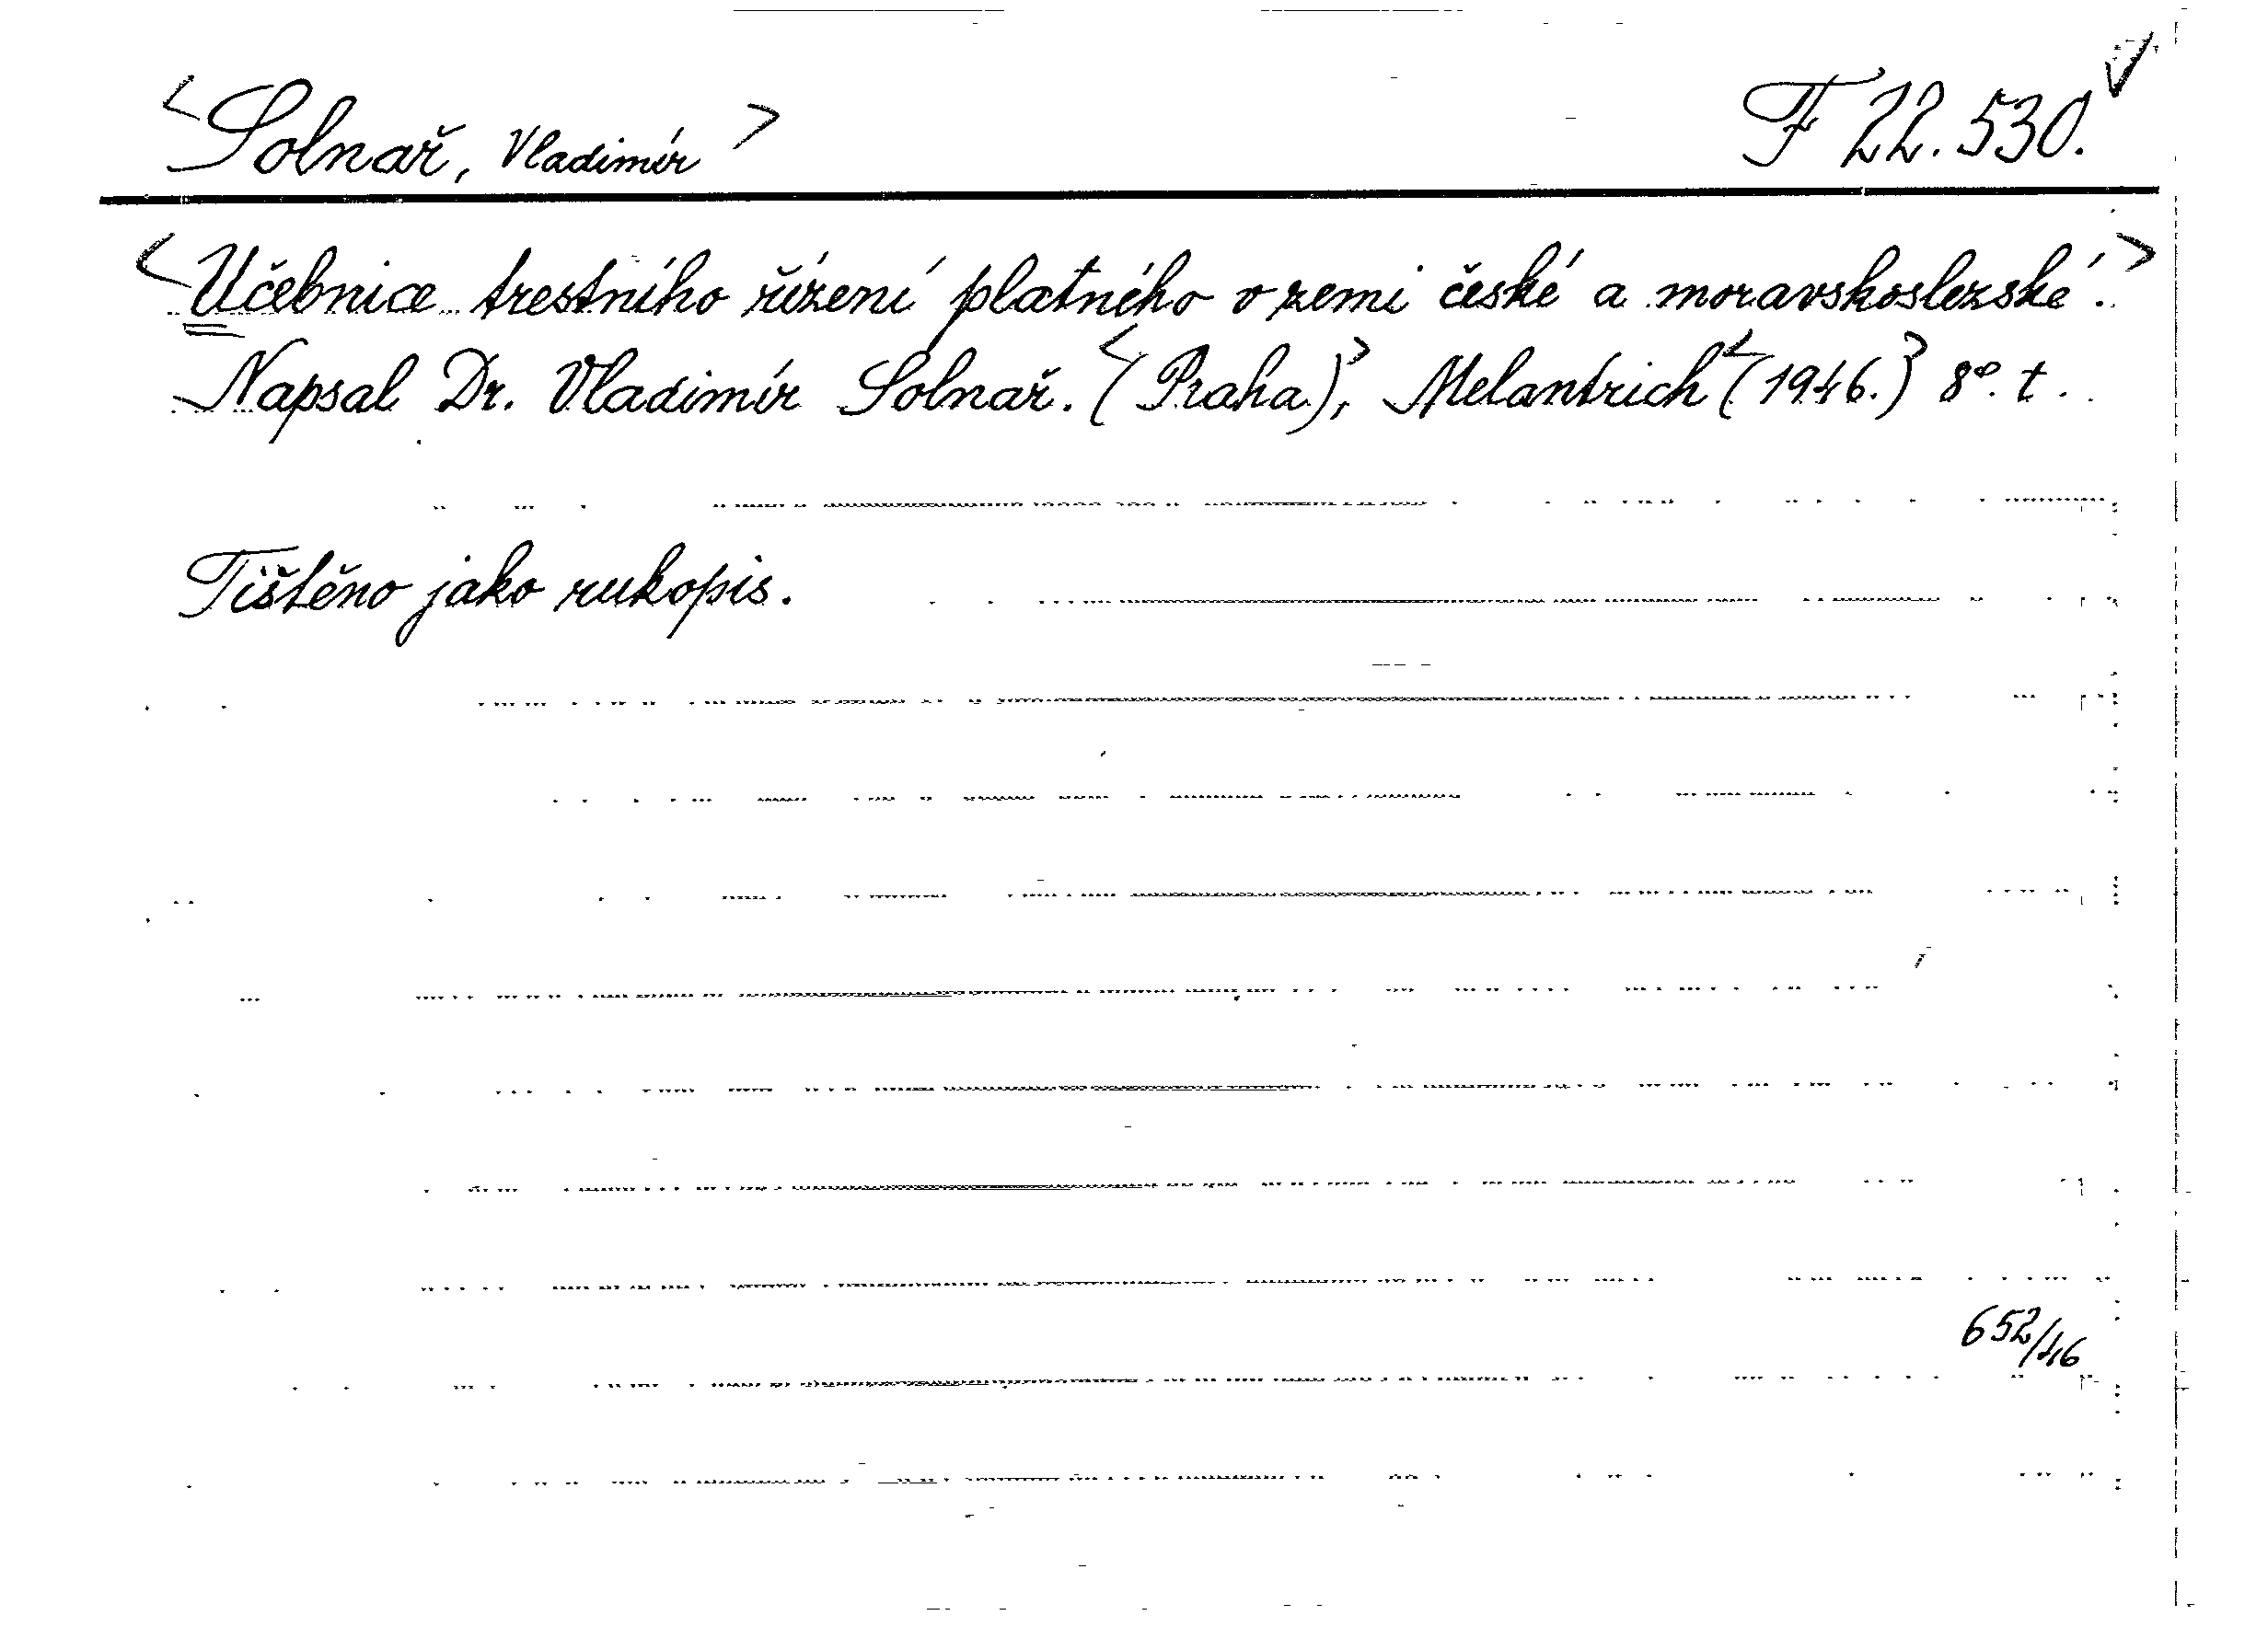 <Solnař, Vladimír> F 22.530.
<Učebnice trestního řízení platného v zemi české a moravskoslezské.>
Napsal Dr. Vladimír Solnař. <(Praha)>, Melantrich <(1946.)> 8°. t.
Tištěno jako rukopis.
652/46